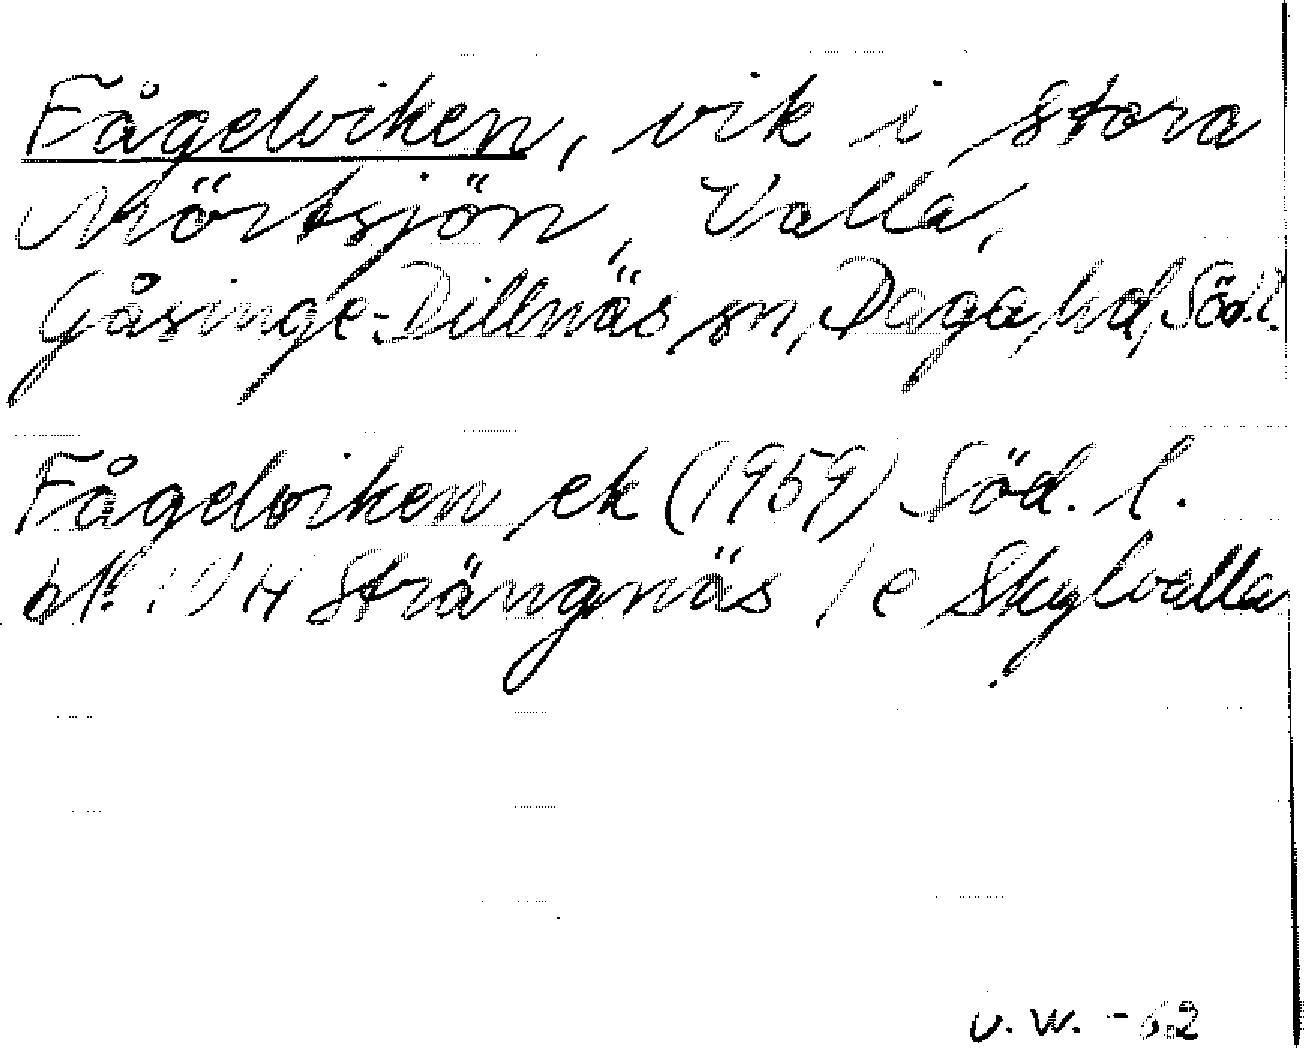 Fågelviken, vik i Stora
Mörtsjön, Valla,
Gåsinge-Dillnäs sn, Daga hd, Söd.l.
Fågelviken ek (1959) Söd. l.
bl. H Strängnäs /e Skylvalla
U. W. -62